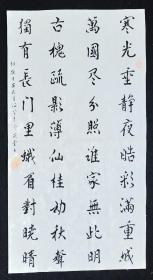 寒光垂静夜皓彩满重城
萬國尽分照谁家無此明
古槐疏影薄仙桂动秋聲
獨有長门里蛾眉對晓晴